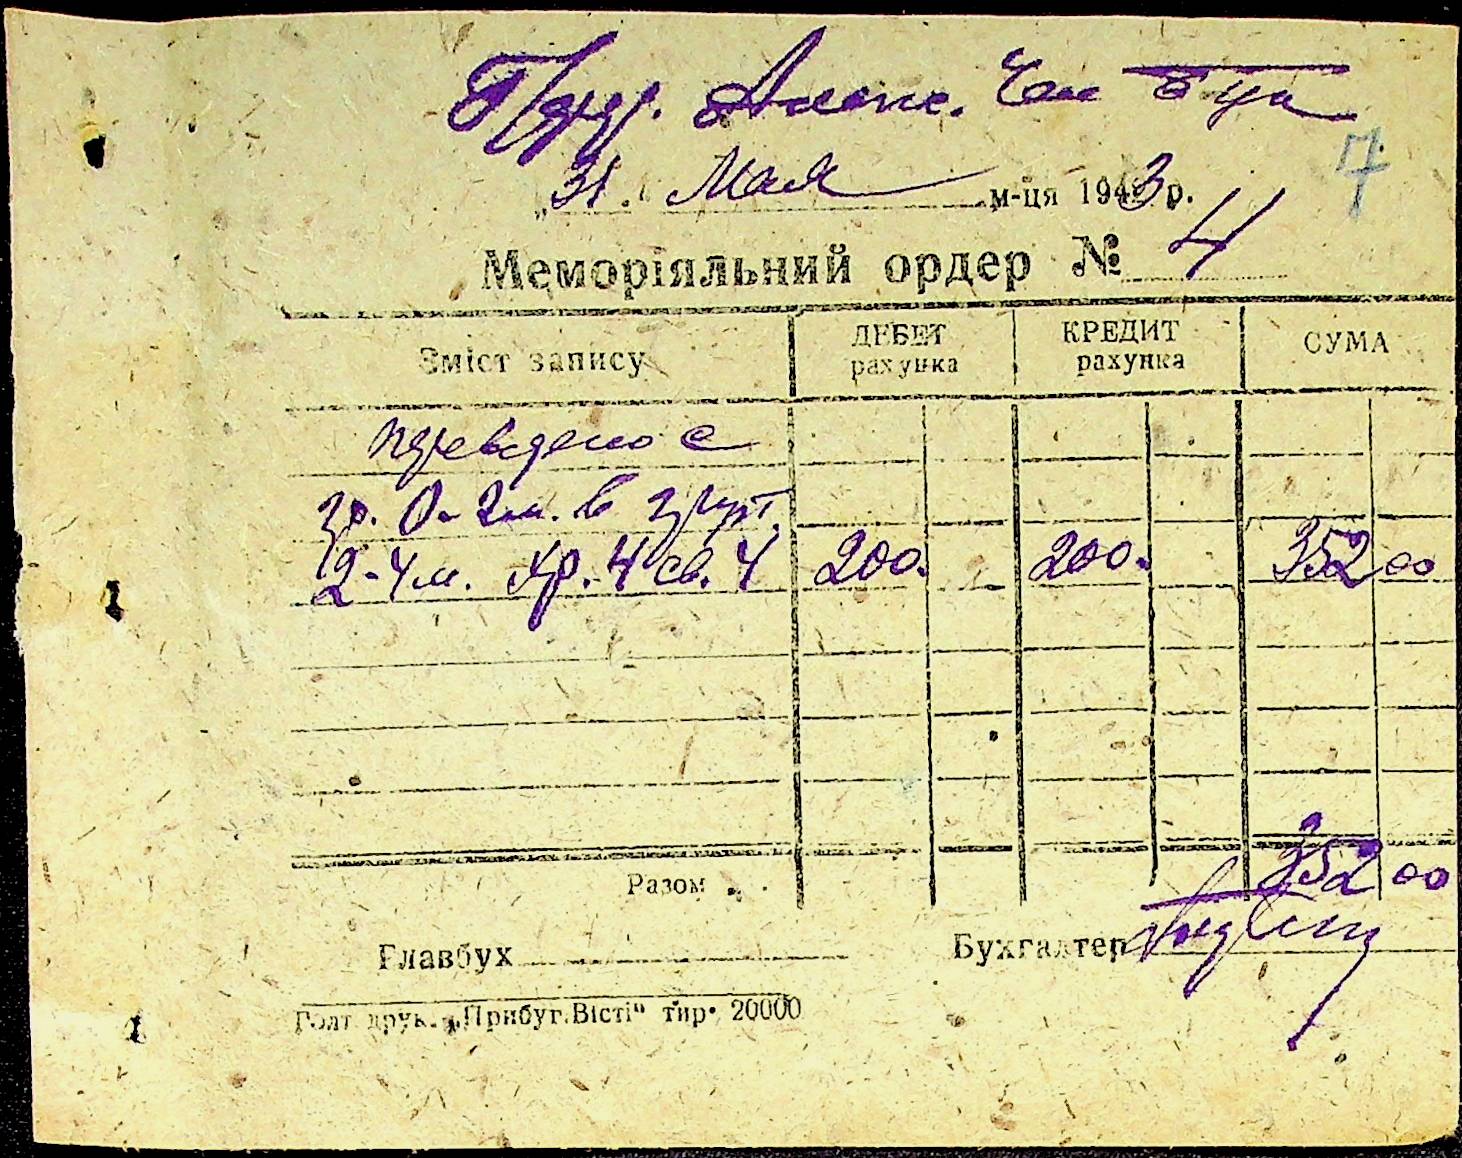 7
„31.“ Мая м-ця 1943 р.
Меморіяльний ордер № 4
Зміст запису ДЕБЕТ рахунка КРЕДИТ рахунка СУМА
переведено с
гр. 0-2 м. в групп.
2-4 м. 200. 200. 352 00
Разом . . 352 00
Главбух Бухгалтер
Голт друк. „Прибуг.Вісті“ тир. 20000